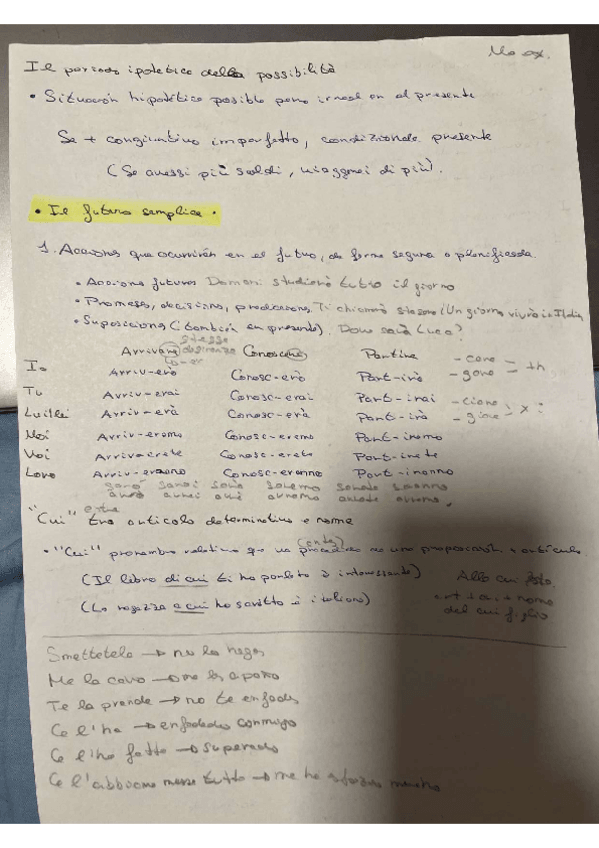 Il periodo ipotetico della possibilità
• Situación hipotética posible pero irreal en el presente
Se + congiuntivo imperfetto, condizionale presente
(Se avessi più soldi, viaggerei di più).
• Il futuro semplice.
1. Acciones que ocurrirán en el futuro, de forma segura o planificada.
• Acciones futuras Domani studierò tutto il giorno
• Promesas, decisiones, predicciones. Ti chiamerò stasera / Un giorno vivrò in Italia
• Suposiciones (también en presente). Dove sarà Luca?
stesse
desinenze
Arrivare Conoscere Partire
- care
- gare = + h
Io Arriv-erò Conosc-erò Part-irò
- ciare
- giare
Tu Arriv-erai Conosc-erai Part-irai
Lui/lei Arriv-erà Conosc-erà Part-irà
Noi Arriv-eremo Conosc-eremo Part-iremo
Voi Arriv-erete Conosc-erete Part-irete
Loro Arriv-eranno Conosc-eranno Part-iranno
sarò sarai sarà saremo sarete saranno
avrò avrai avrà avremo avrete avranno
"Cui" tra articolo determinativo e nome
• "Cui" pronombre relativo que va precedido de una preposición o artículo
(antes)
(Il libro di cui ti ho parlato è interessante)
(La ragazza a cui ho scritto è italiana)
art + cui + nome
del cui figlio
Smettetela → no lo hagas
Me la cavo → me las apaño
Te la prende → no te enfades
Ce l'ha → enfadado conmigo
Ce l'ho fatta → superado
Ce l'abbiamo messa tutta → me he esforzado mucho